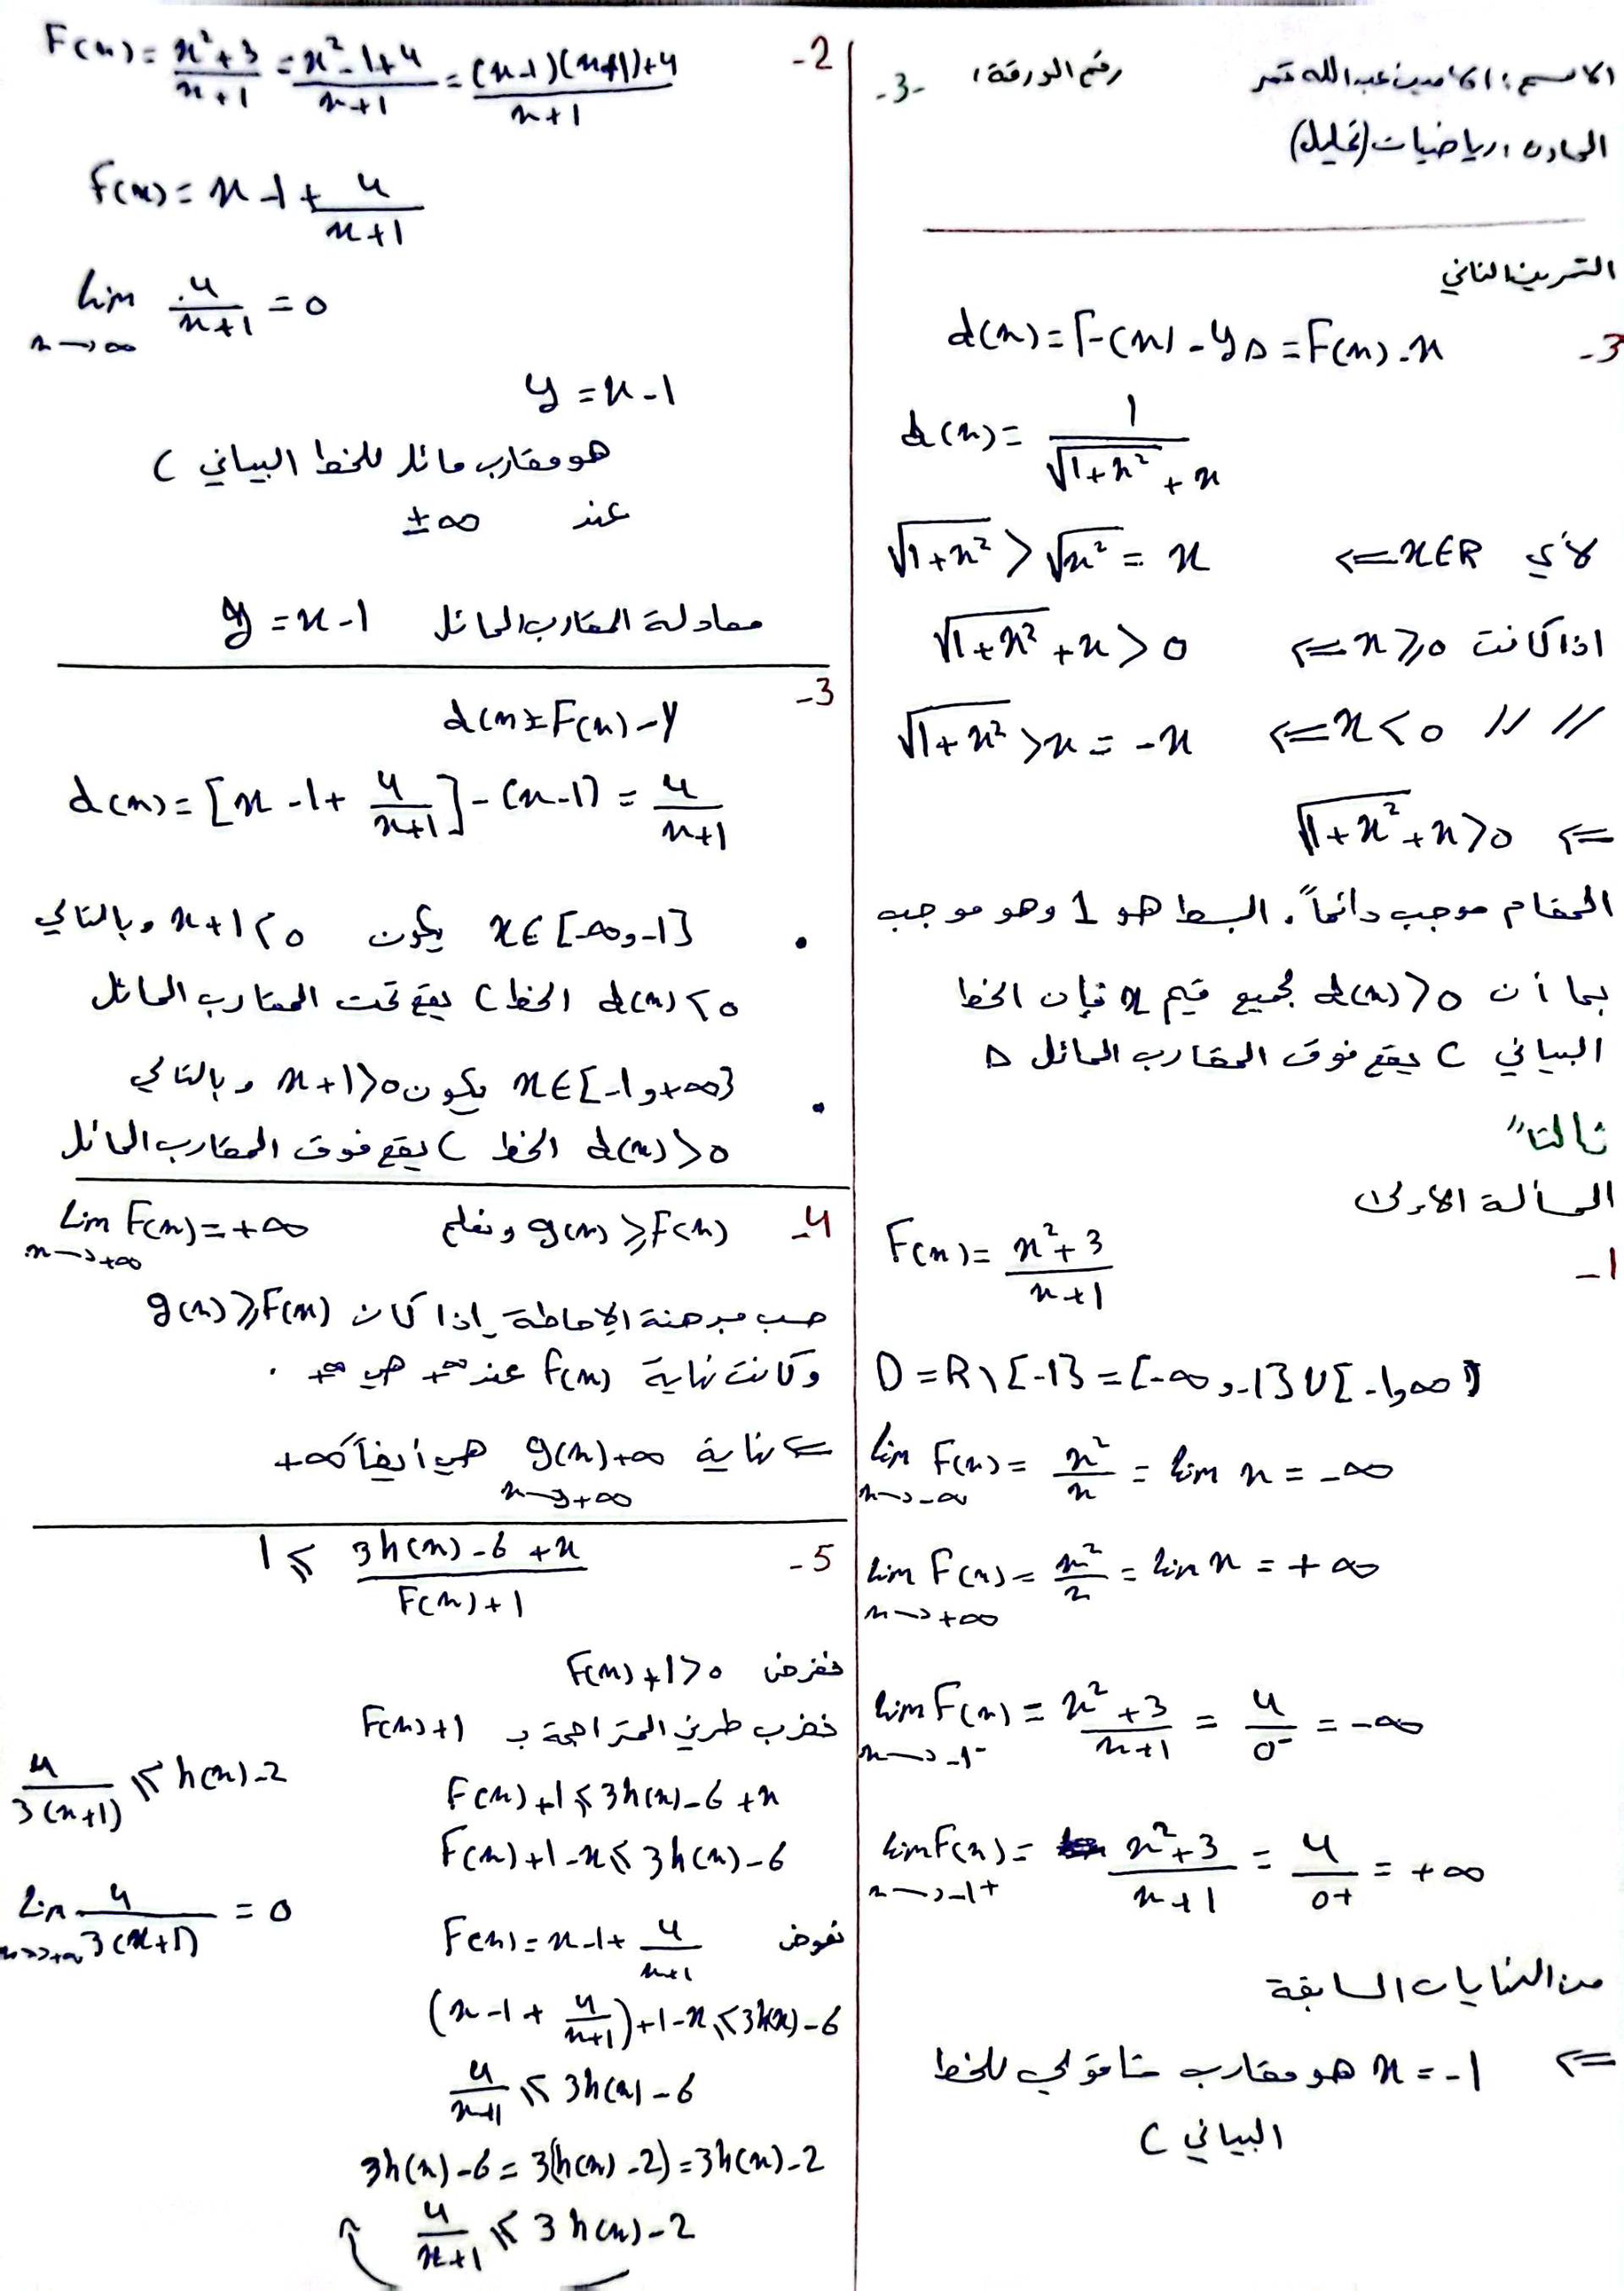 الاسم: الامين عبدالله قمر
رقم الورقة: -3-
المادة: رياضيات (تحليل)
التمرين الثاني
3- d(x) = F(x) - y_Δ = F(x) - x
d(x) = 1/(√(1+x²) + x)
لأي x∈R ⇐ √(1+x²) > √x² = x
اذا كانت x ≥ 0 ⇐ √(1+x²) + x > 0
// // x < 0 ⇐ √(1+x²) > x = -x
⇐ √(1+x²) + x > 0
المقام موجب دائماً. البسط هو 1 وهو موجب
بما أن d(x) > 0 لجميع قيم x فإن الخط
البياني C يقع فوق المقارب المائل Δ
ثالثا"
المسألة الاولى
1- F(x) = (x²+3)/(x+1)
D = R\{-1} = [-∞, -1[ ∪ ]-1, ∞[
lim x→-∞ F(x) = x²/x = lim x = -∞
lim x→+∞ F(x) = x²/x = lim x = +∞
lim x→-1⁻ F(x) = (x²+3)/(x+1) = 4/0⁻ = -∞
lim x→-1+ F(x) = (x²+3)/(x+1) = 4/0+ = +∞
من النهايات السابقة
⇐ x = -1 هو مقارب شاقولي للخط
البياني C
2- F(x) = (x²+3)/(x+1) = (x²-1+4)/(x+1) = ((x-1)(x+1)+4)/(x+1)
F(x) = x-1 + 4/(x+1)
lim x→∞ 4/(x+1) = 0
y = x-1
هو مقارب مائل للخط البياني C
عند ±∞
معادلة المقارب المائل y = x-1
3- d(x) = F(x) - y
d(x) = [x-1 + 4/(x+1)] - (x-1) = 4/(x+1)
• x∈[-∞, -1[ يكون x+1 < 0 وبالتالي
d(x) < 0 الخط C يقع تحت المقارب المائل
• x∈]-1, +∞[ يكون x+1 > 0 وبالتالي
d(x) > 0 الخط C يقع فوق المقارب المائل
4- g(x) ≥ F(x) ونعلم lim x→+∞ F(x) = +∞
حسب مبرهنة الإحاطة إذا كان g(x) ≥ F(x)
وكانت نهاية f(x) عند +∞ هي +∞ .
⇐ نهاية g(x)+∞ x→+∞ هي أيضاً +∞
5- 1 ≤ (3h(x)-6+x)/(F(x)+1)
نفرض F(x)+1 > 0
نضرب طرفي المتراجحة بـ F(x)+1
F(x)+1 ≤ 3h(x)-6+x
F(x)+1-x ≤ 3h(x)-6
نعوض F(x) = x-1 + 4/(x+1)
(x-1 + 4/(x+1)) +1-x ≤ 3h(x)-6
4/(x+1) ≤ 3h(x)-6
3h(x)-6 = 3(h(x)-2) = 3h(x)-2
4/(x+1) ≤ 3h(x)-2
4/(3(x+1)) ≤ h(x)-2
lim x→+∞ 4/(3(x+1)) = 0